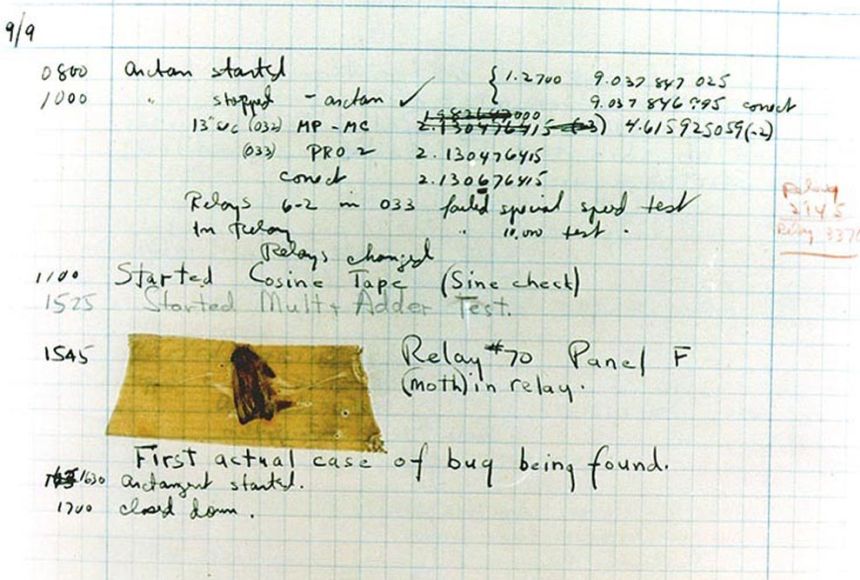 9/9
0800 arctan started { 1.2700 9.037 847 025
1000 " stopped - arctan ✓ 9.037 846 995 correct
13"uc (032) MP - MC 2.130476415 (-3) 4.615925059(-2)
(033) PRO 2 2.130476415
correct 2.130676415
Relays 6-2 in 033 failed special speed test
In Relay " 10,000 test .
Relays changed
Relay
2145
Relay 3370
1100 Started Cosine Tape (Sine check)
1525 Started Mult + Adder Test.
1545 Relay #70 Panel F
(moth) in relay.
First actual case of bug being found.
1630 arctangent started.
1700 closed down.